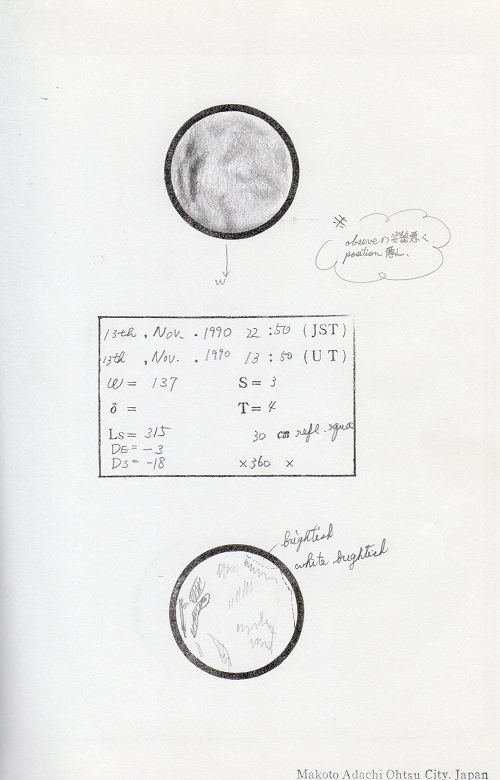 W
※
observeの姿勢悪く
position 悪し.
13th , Nov. . 1990 22 : 50 (JST)
13th , Nov. . 1990 13 : 50 (UT)
ω = 137 S = 3
δ = T = 4
Ls = 315 30 cm refl.
DE = -3
Ds = -18 ×360 ×
brightish
white brightish
Makoto Adachi Ohtsu City. Japan